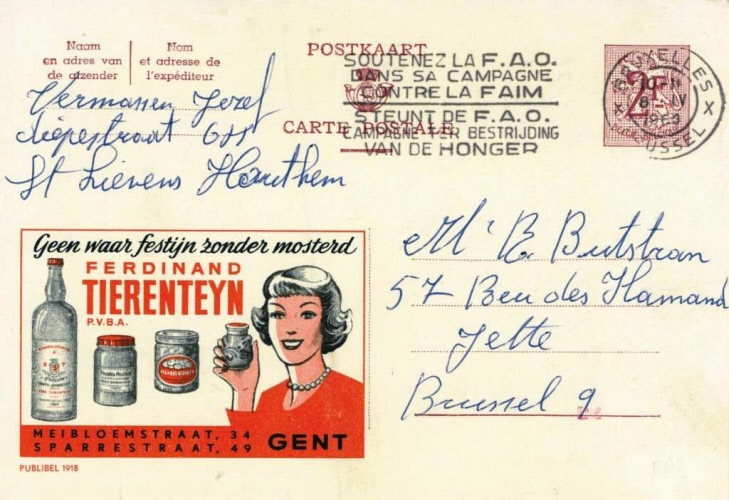 Naam
en adres van
de afzender
Nom
et adresse de
l'expéditeur
POSTKAART
CARTE POSTALE
SOUTENEZ LA F.A.O.
DANS SA CAMPAGNE
CONTRE LA FAIM
STEUNT DE F.A.O.
CAMPAGNE TER BESTRIJDING
VAN DE HONGER
2F
BRUXELLES
1963
BRUSSEL
Vermassen Jozef
Diepestraat
St Lievens Houthem
Geen waar festijn zonder mosterd
FERDINAND
TIERENTEYN
P.V.B.A.
MEIBLOEMSTRAAT, 34
SPARRESTRAAT, 49
GENT
PUBLIBEL 1918
Mr
57 des
Jette
Brussel 9